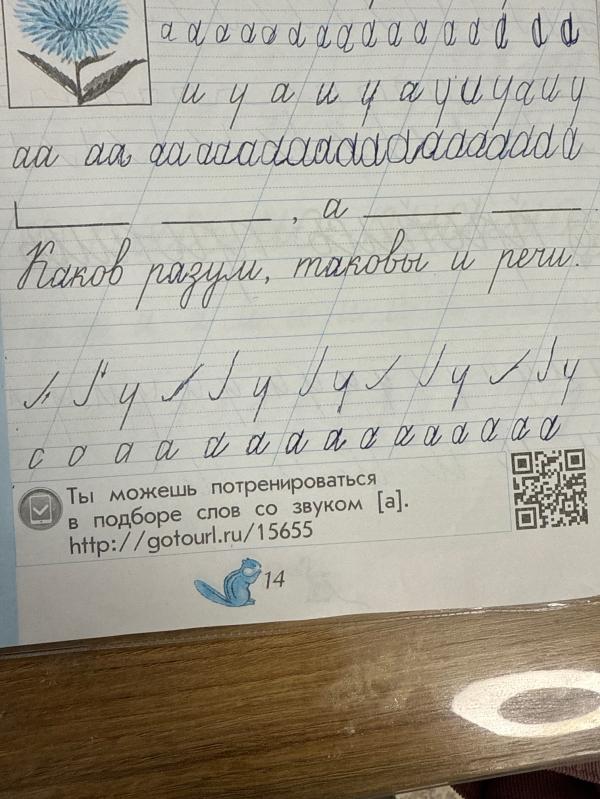 а а а а а а а а а а а а а а а а
и у а и у а у и у а и у
аа аа аааааааааааааааааа
, а
Каков разум, таковы и речи.
у у у у у
с о а а а а а а а а а а а а а
Ты можешь потренироваться
в подборе слов со звуком [а].
http://gotourl.ru/15655
14